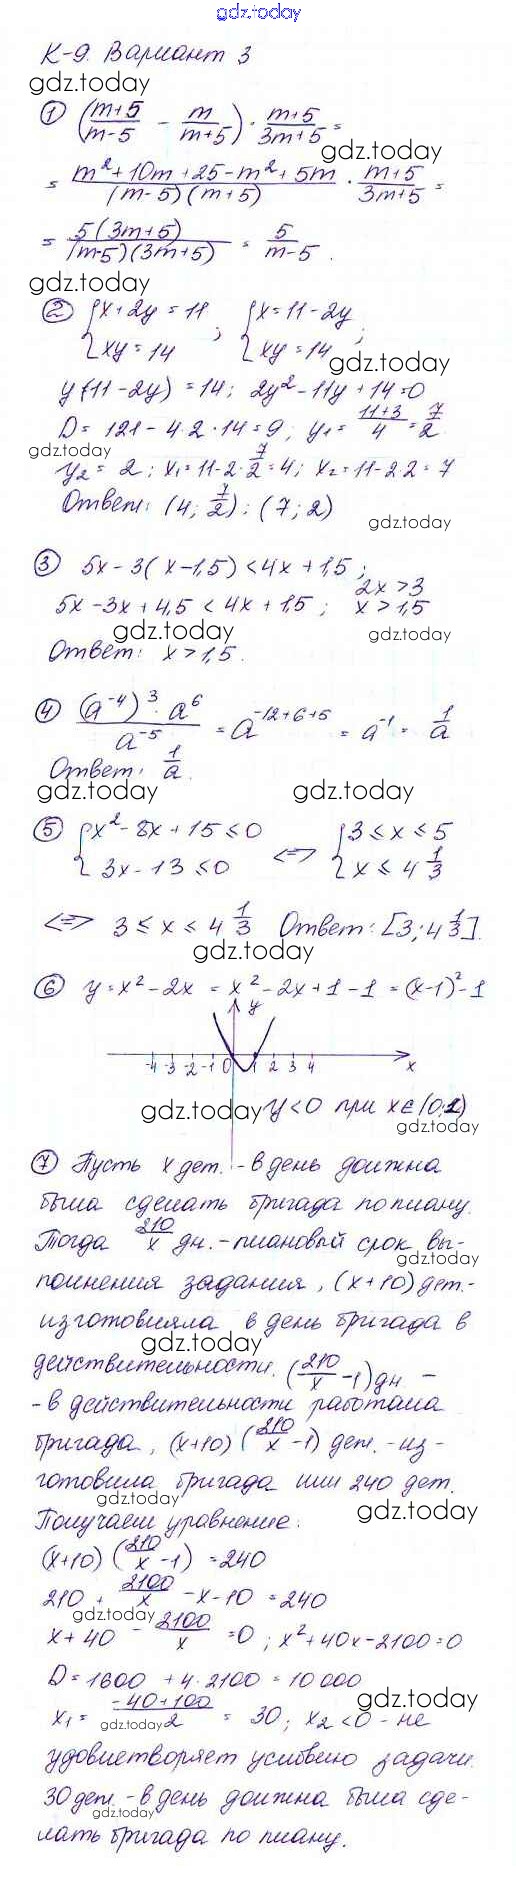 gdz.today
К-9. Вариант 3
gdz.today
① ((m+5)/(m-5) - m/(m+5)) · (m+5)/(3m+5) =
gdz.today
= (m²+10m+25-m²+5m)/((m-5)(m+5)) · (m+5)/(3m+5) =
= 5(3m+5)/((m-5)(3m+5)) = 5/(m-5).
gdz.today
② {x+2y=11 {xy=14 ; {x=11-2y {xy=14 ;
gdz.today
y(11-2y)=14; 2y²-11y+14=0
D=121-4·2·14=9; y₁=(11+3)/4=7/2
gdz.today
y₂=2; x₁=11-2·7/2=4; x₂=11-2·2=7
Ответ: (4; 7/2); (7; 2)
gdz.today
③ 5x-3(x-1,5)<4x+1,5;
2x>3
5x-3x+4,5<4x+1,5; x>1,5
gdz.today gdz.today
Ответ: x>1,5.
④ ((a⁻⁴)³·a⁶)/a⁻⁵ = a⁻¹²⁺⁶⁺⁵ = a⁻¹ = 1/a
Ответ: 1/a.
gdz.today gdz.today
⑤ {x²-8x+15≤0 {3x-13≤0 <=> {3≤x≤5 {x≤4 1/3
<=> 3≤x≤4 1/3 Ответ: [3; 4 1/3].
gdz.today
⑥ y=x²-2x=x²-2x+1-1=(x-1)²-1
gdz.today
y
-4 -3 -2 -1 0 1 2 3 4 x
gdz.today y<0 при x∈(0;2)
gdz.today
⑦ Пусть x дет. - в день должна
была сделать бригада по плану.
Тогда 210/x дн. - плановый срок вы-
gdz.today
полнения задания, (x+10) дет.-
изготовляла в день бригада в
gdz.today
действительности. (210/x -1) дн -
- в действительности работала
бригада, (x+10)(210/x -1) дет. - из-
готовила бригада или 240 дет.
gdz.today gdz.today
Получаем уравнение:
(x+10)(210/x -1)=240
210+2100/x-x-10=240
gdz.today
x+40-2100/x=0; x²+40x-2100=0
D=1600+4·2100=10000
x₁=(-40+100)/2=30; x₂<0 - не
gdz.today gdz.today
удовлетворяет условию задачи.
30 дет. - в день должна была сде-
gdz.today
лать бригада по плану.